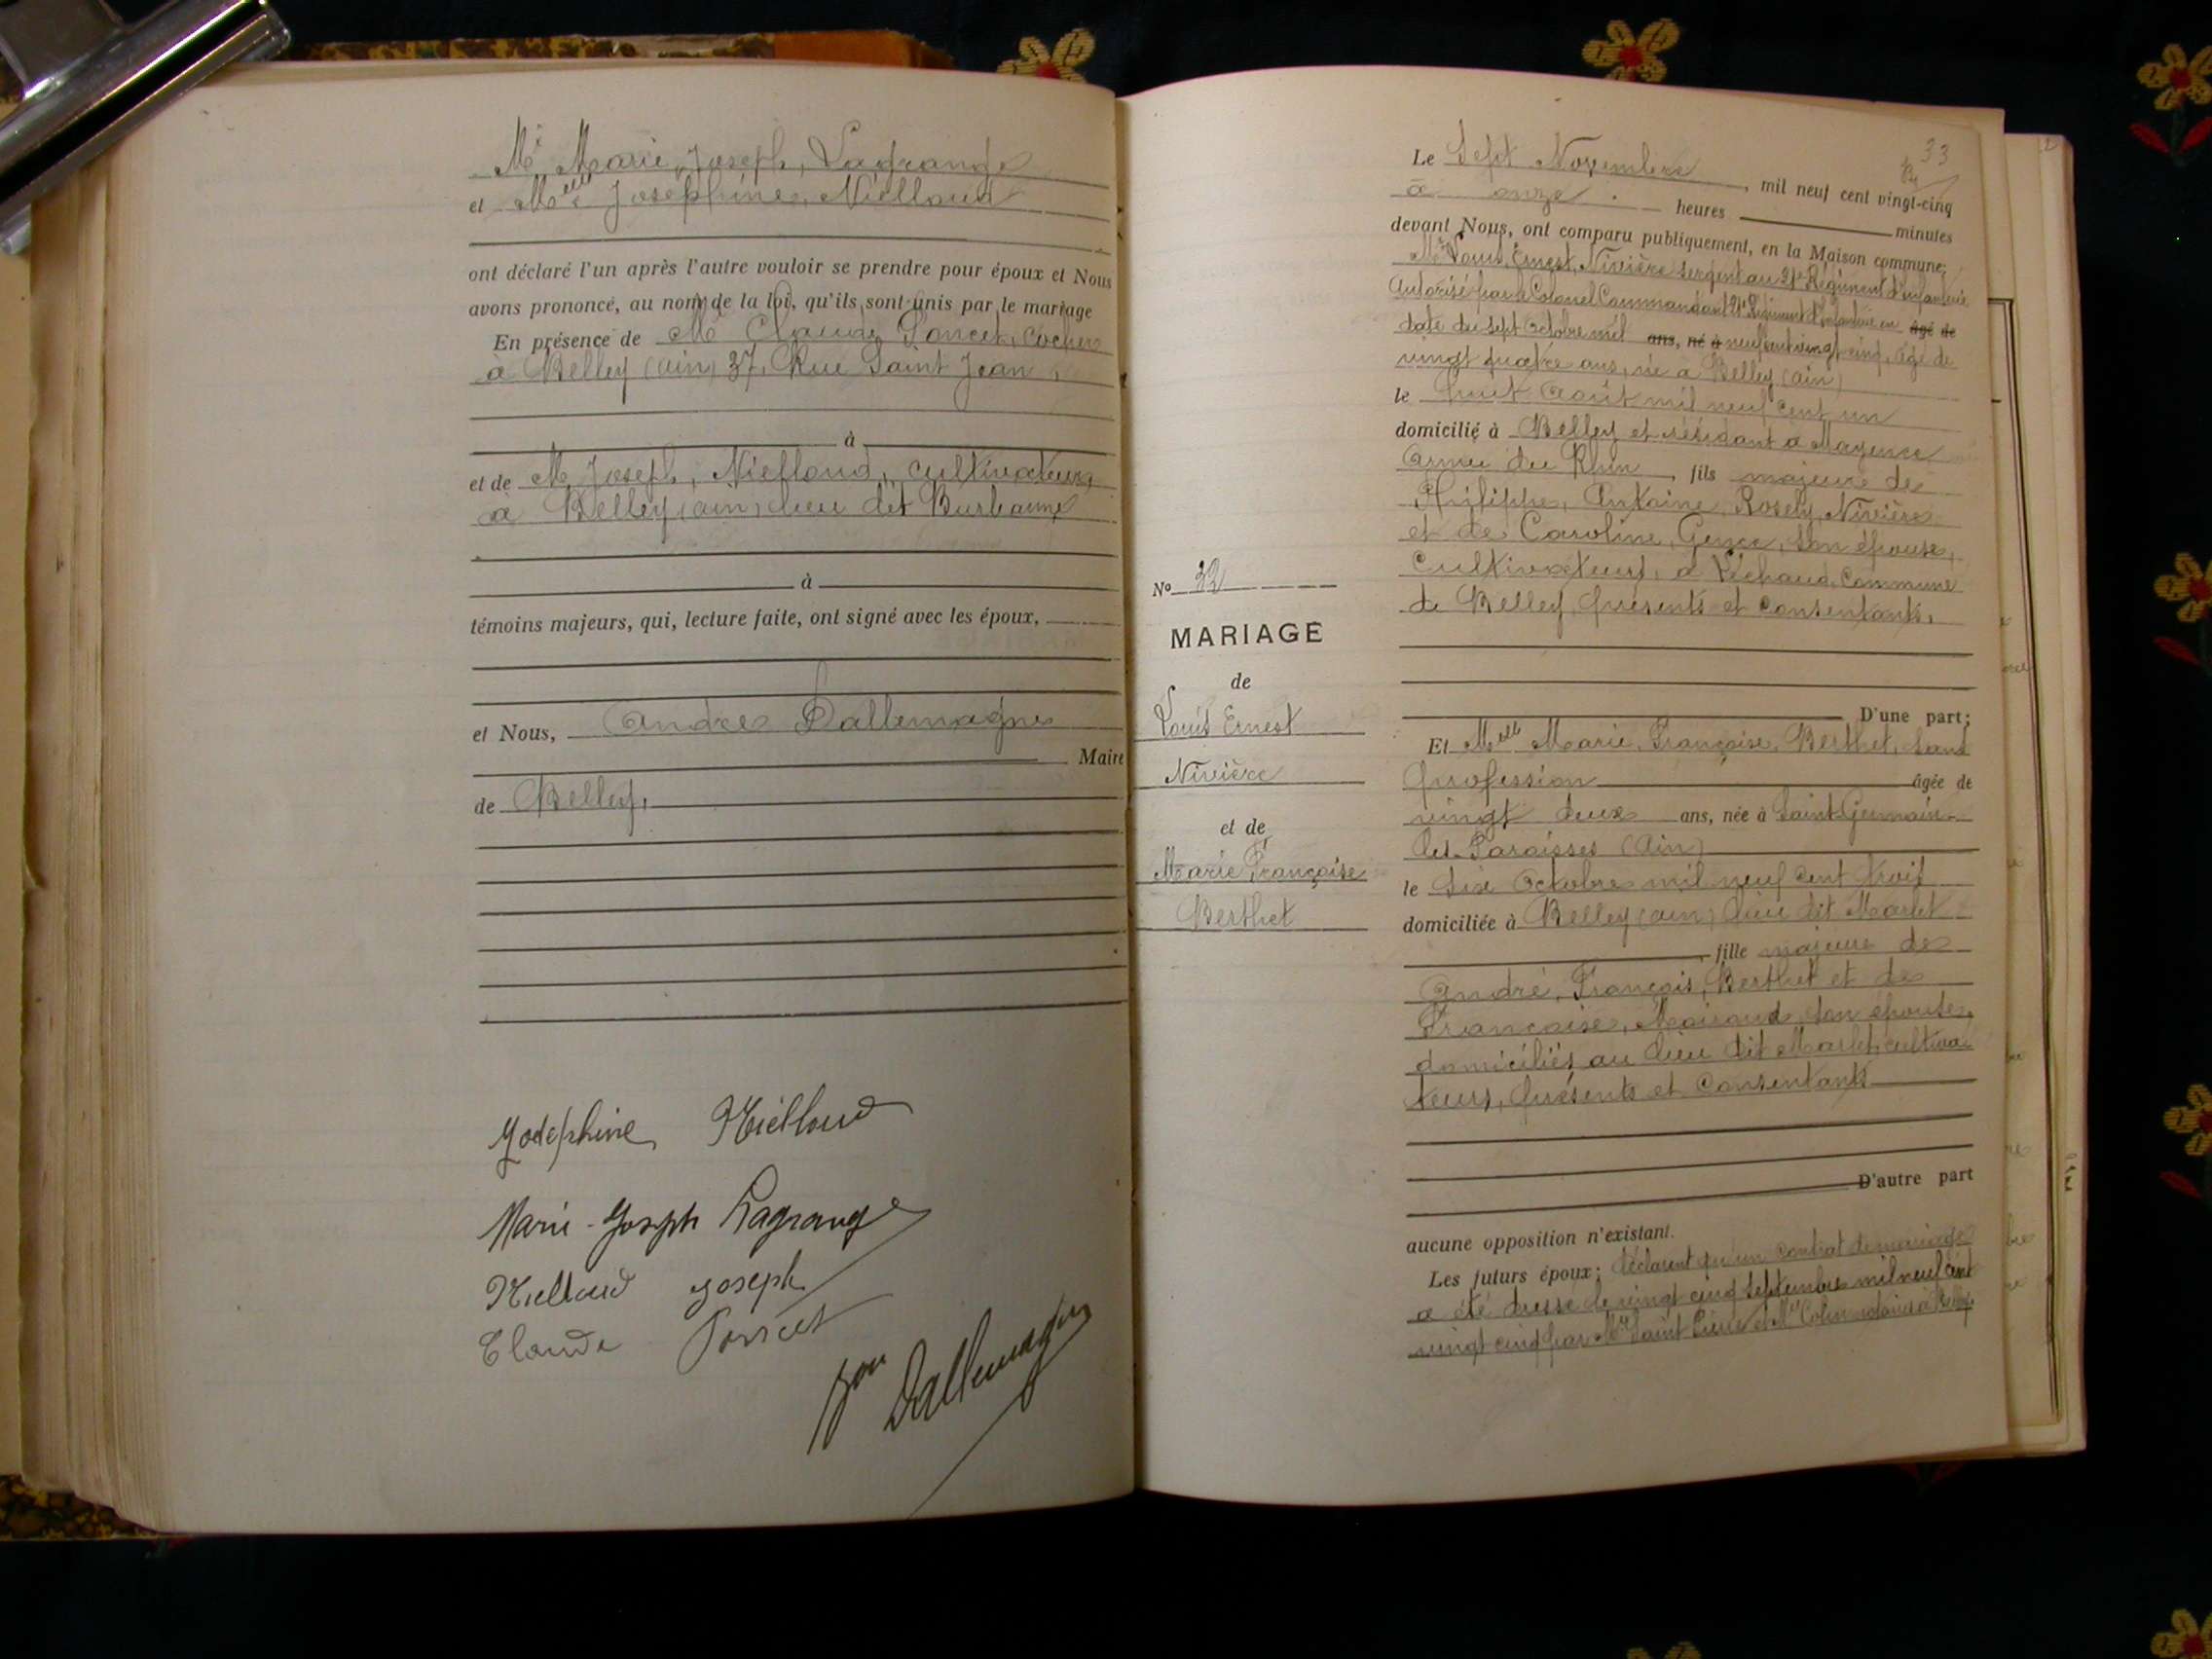 Mr Marie, Joseph, Lagrange
et Melle Joséphine, Niélloud
ont déclaré l'un après l'autre vouloir se prendre pour époux et Nous
avons prononcé, au nom de la loi, qu'ils sont unis par le mariage
En présence de M Claude Poncet, Cocher
à Belley (ain) 37, Rue Saint Jean,
à
et de M Joseph, Niélloud, cultivateur,
à Belley (ain) lieu dit Burbanne
à
témoins majeurs, qui, lecture faite, ont signé avec les époux,
et Nous, André Dallemagne
Maire
de Belley,
Joséphine Niélloud
Marie-Joseph Lagrange
Niélloud Joseph
Claude Poncet
Dallemagne
33
Le Sept Novembre, mil neuf cent vingt-cinq
à onze heures minutes
devant Nous, ont comparu publiquement, en la Maison commune;
Mr Louis, Ernest, Nivière Sergent au 21e Régiment d'infanterie
Autorisé par le Colonel Commandant 21e Régiment d'infanterie en âgé de
date du sept octobre mil ans, né à neuf cent vingt cinq, âgé de
vingt quatre ans, né à Belley (ain)
le huit Août mil neuf cent un
domicilié à Belley et résidant à Mayence
Armée du Rhin, fils majeur de
Philippe, Antoine, Rosely, Nivière
et de Caroline, Genca, son épouse,
Cultivateurs, à Commune
de Belley, présents et consentants,
D'une part;
Et Melle Marie, Françoise, Berthet, sans
profession âgée de
vingt deux ans, née à Saint-Germain-
les-Paroisses (Ain)
le Six Octobre mil neuf cent trois
domiciliée à Belley (ain) lieu dit Marlet
fille majeure de
André, François, Berthet et de
Françoise, son épouse,
domiciliés au lieu dit Marlet, cultiva-
teurs, présents et consentants
D'autre part
aucune opposition n'existant.
Les futurs époux; déclarent qu'un contrat de mariage
a été dressé le vingt cinq Septembre mil neuf cent
vingt cinq par Me Saint Pierre et Me Colin notaires à Belley
No 32
MARIAGE
de
Louis Ernest
Nivière
et de
Marie Françoise
Berthet